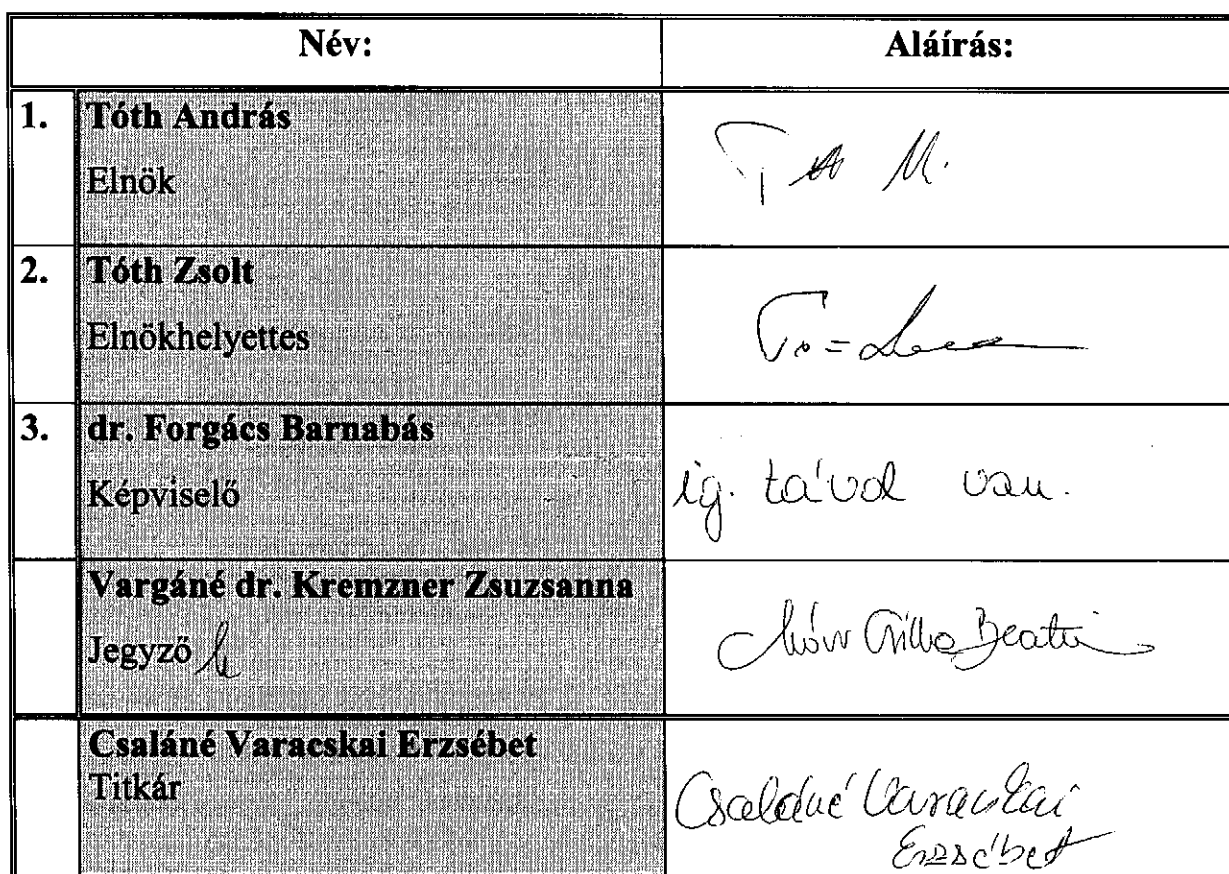 Név: Aláírás:
1. Tóth András
Elnök
2. Tóth Zsolt
Elnökhelyettes
3. dr. Forgács Barnabás
Képviselő
ig. távol van.
Vargáné dr. Kremzner Zsuzsanna
Jegyző
Csaláné Varacskai Erzsébet
Titkár
Csaláné Varacskai
Erzsébet